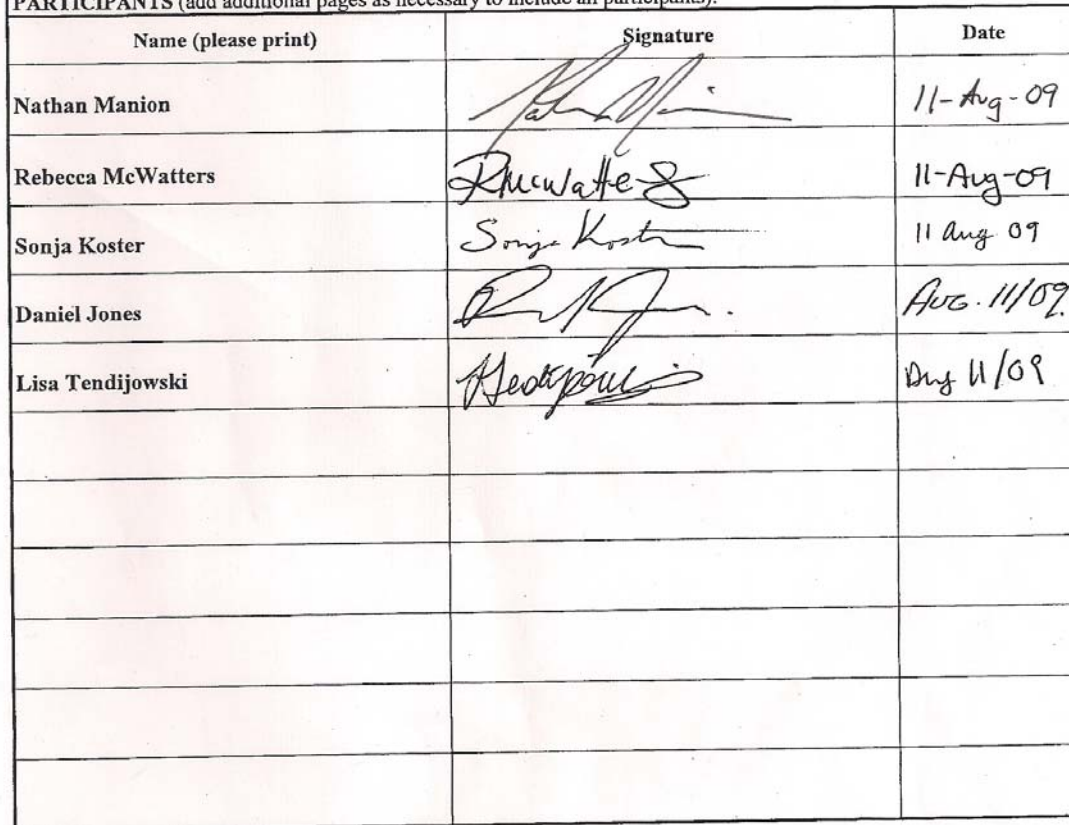 PARTICIPANTS (add additional pages as necessary to include all participants).
Name (please print) Signature Date
Nathan Manion 11-Aug-09
Rebecca McWatters RMcWatte 11-Aug-09
Sonja Koster Sonja Koster 11 Aug 09
Daniel Jones AUG. 11/09.
Lisa Tendijowski Aug 11/09